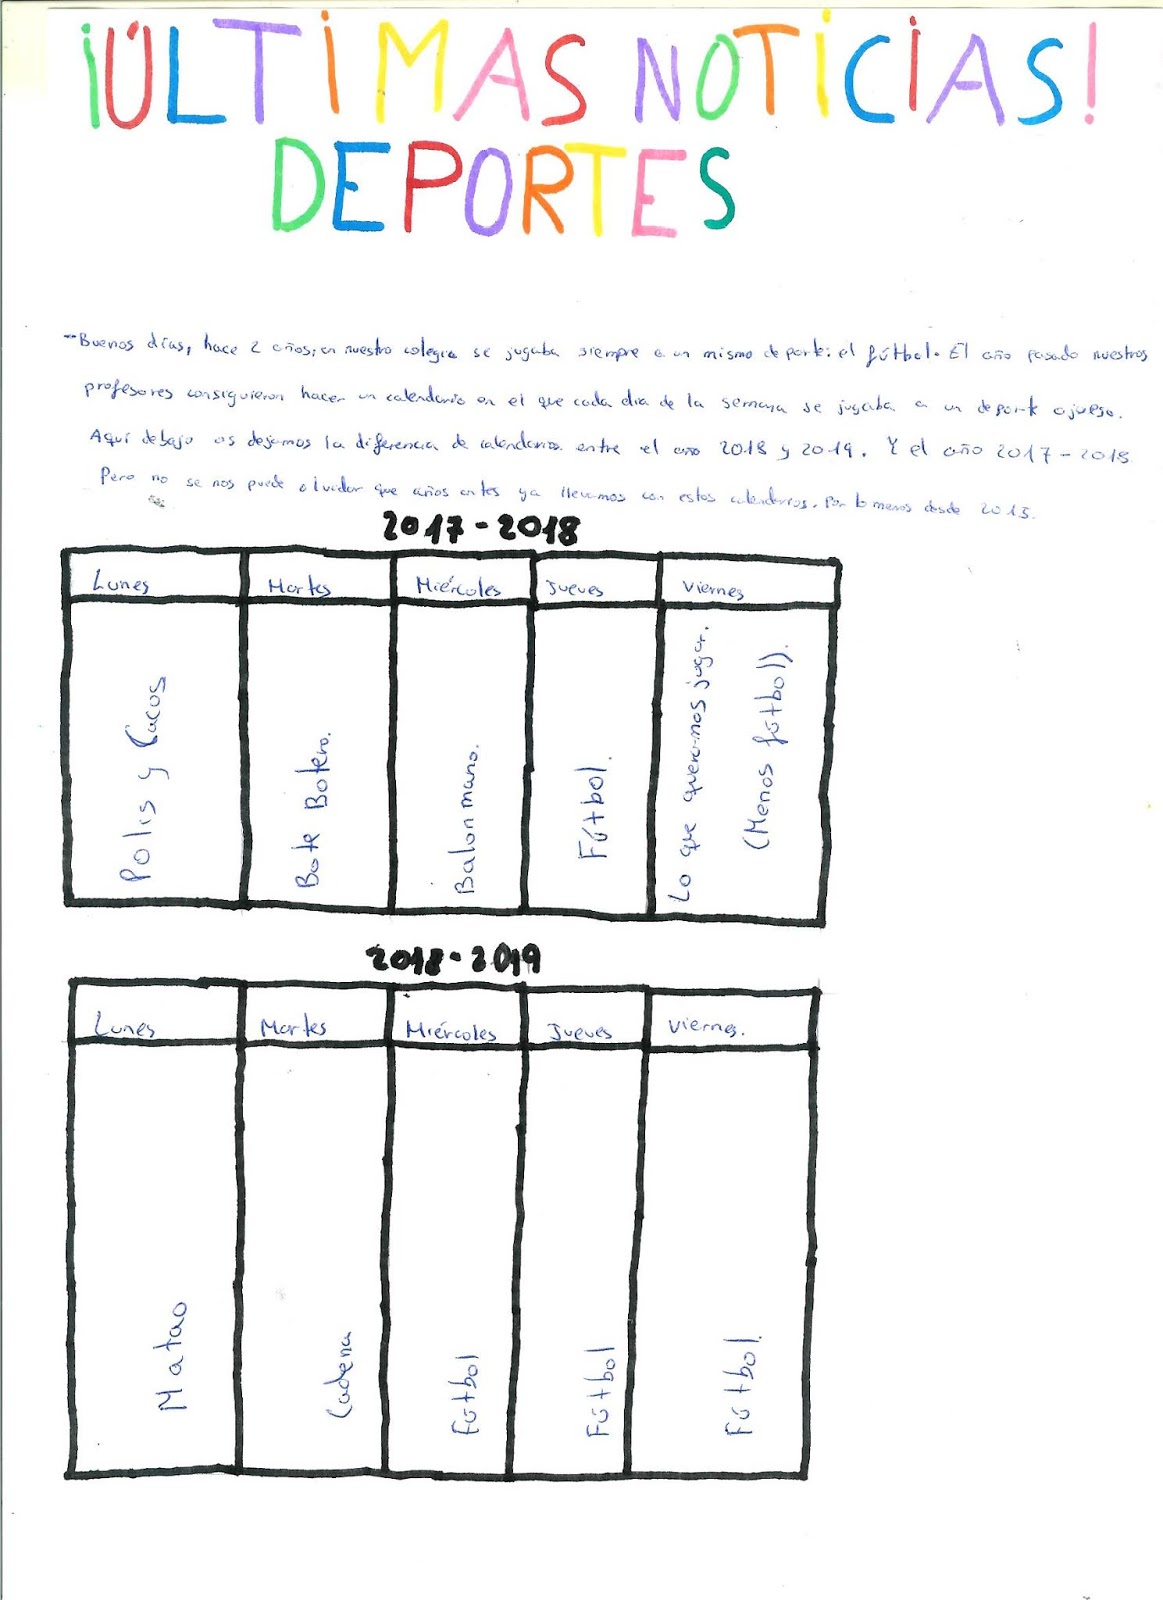 ¡ÚLTIMAS NOTICIAS!
DEPORTES
-Buenos días, hace 2 años, en nuestro colegio se jugaba siempre a un mismo deporte: el fútbol. El año pasado nuestros
profesores consiguieron hacer un calendario en el que cada día de la semana se jugaba a un deporte o juego.
Aquí debajo os dejamos la diferencia de calendarios entre el año 2018 y 2019. Y el año 2017-2018
Pero no se nos puede olvidar que años antes ya llevamos con estos calendarios. Por lo menos desde 2015.
2017-2018
Lunes Martes Miércoles Jueves Viernes
Polis y Cacos
Bote Botero.
Balonmano.
Fútbol.
Lo que queramos jugar.
(Menos fútbol).
2018-2019
Lunes Martes Miércoles Jueves Viernes.
Matao
Cadena
Fútbol
Fútbol
Fútbol.